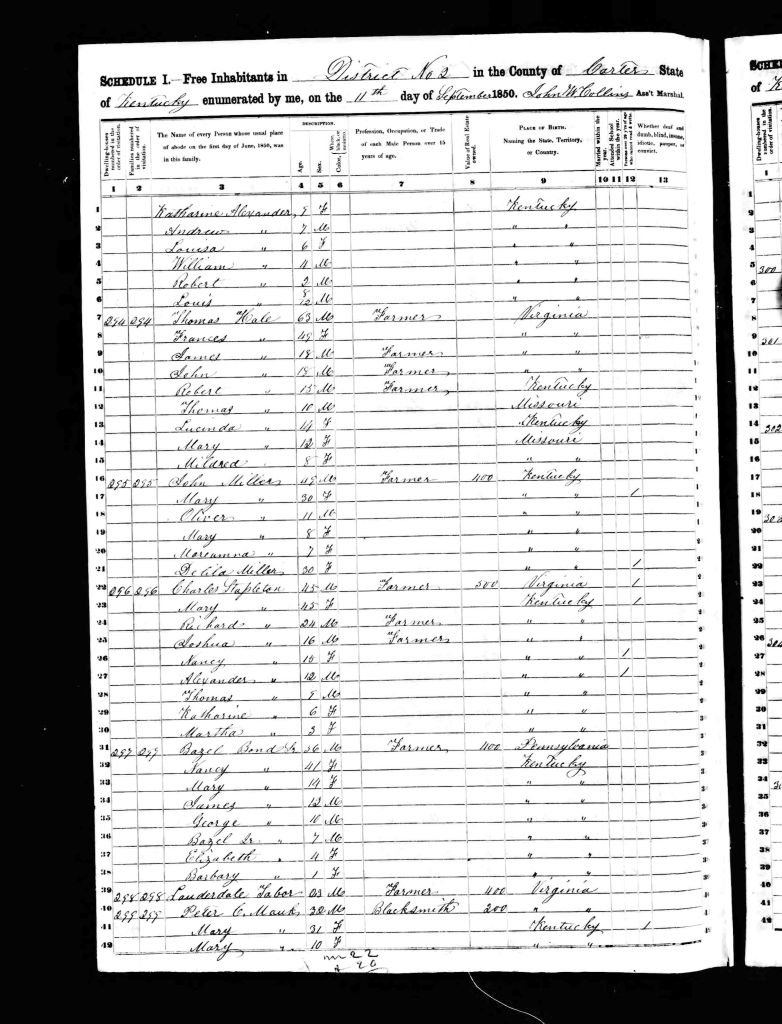 SCHEDULE I.—Free Inhabitants in District No 2 in the County of Carter State
of Kentucky enumerated by me, on the 11th day of September 1850. John W Collins Ass't Marshal.
Dwelling-houses numbered in the order of visitation. Families numbered in the order of visitation. The Name of every Person whose usual place of abode on the first day of June, 1850, was in this family. DESCRIPTION. Age. Sex. Color, White, black, or mulatto. Profession, Occupation, or Trade of each Male Person over 15 years of age. Value of Real Estate owned. PLACE OF BIRTH. Naming the State, Territory, or Country. Married within the year. Attended School within the year. Persons over 20 y'rs of age who cannot read & write. Whether deaf and dumb, blind, insane, idiotic, pauper, or convict.
1 2 3 4 5 6 7 8 9 10 11 12 13
1 Katharine Alexander 9 F Kentucky
2 Andrew " 7 M " "
3 Louisa " 6 F " "
4 William " 4 M " "
5 Robert " 2 M " "
6 Louis " 8/12 M " "
7 294 294 Thomas Hale 63 M Farmer Virginia
8 Frances " 49 F " "
9 James " 19 M Farmer " "
10 John " 18 M Farmer " "
11 Robert " 15 M Farmer Kentucky
12 Thomas " 10 M Missouri
13 Lucinda " 14 F Kentucky
14 Mary " 12 F Missouri
15 Mildred 8 F " "
16 295 295 John Miller 49 M Farmer 400 Kentucky
17 Mary " 30 F " " 1
18 Oliver " 11 M " "
19 Mary " 8 F " "
20 " 7 F " "
21 Delila Miller 30 F " " 1
22 296 296 Charles Stapleton 45 M Farmer 500 Virginia 1
23 Mary " 45 F Kentucky 1
24 Richard " 24 M Farmer " "
25 Joshua " 16 M Farmer " "
26 Nancy " 15 F " " 1
27 Alexander " 12 M " " 1
28 Thomas " 9 M " "
29 Katharine " 6 F " "
30 Martha " 3 F " "
31 297 297 Bazel Bond Sr 56 M Farmer 400 Pennsylvania
32 Nancy " 41 F Kentucky
33 Mary " 14 F " "
34 James " 12 M " "
35 George " 10 M " "
36 Bazel Jr " 7 M " "
37 Elizabeth " 4 F " "
38 Barbary " 1 F " "
39 298 298 Lauderdale Tabor 23 M Farmer 400 Virginia
40 299 299 Peter C. Mauk 32 M Blacksmith 200 " "
41 Mary " 31 F Kentucky 1
42 Mary " 10 F " "
m 22
20